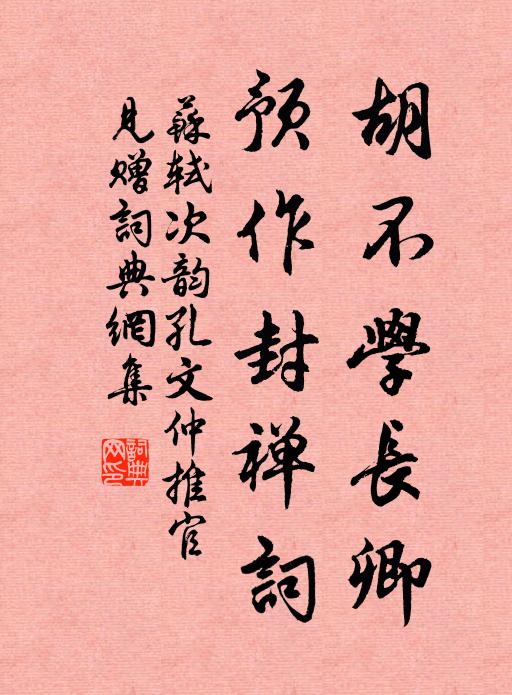 胡不學長卿
預作封禅詞
蘇軾次韵孔文仲推官
見赠詞典網集
詞典
网印